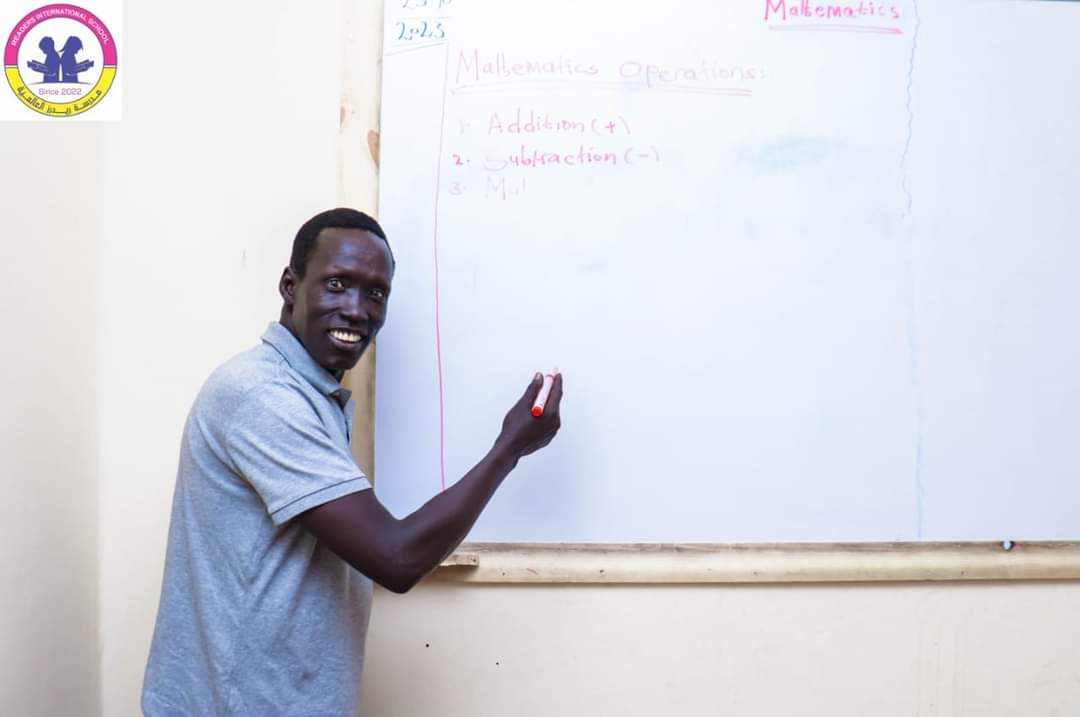 READERS INTERNATIONAL SCHOOL
Since 2022
مدرسة ريدرز العالمية
2023
Mathematics
Mathematics Operations:
1. Addition (+)
2. Subtraction (-)
3. Mul